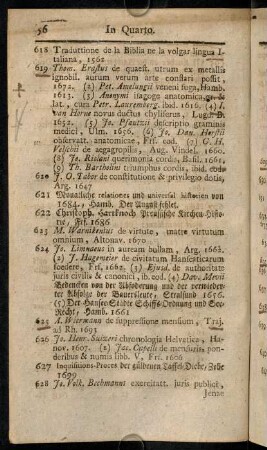 56 In Quarto.
618 Traduttione de la Biblia ne la volgar lingua I-
taliana, 1562
619 Thom. Erastus de quaest. utrum ex metallis
ignobil. aurum verum arte conflari possit,
1672. (2) Pet. Amelungii veneni fuga, Hamb.
1613. (3) Anonymi isagoge anatomica, gr. &
lat., cum Petr. Lauremberg. ibid. 1616. (4) J.
van Horne novus ductus chyliferus, Lugd. B.
1652. (5) Jo. Pfautzii descriptio graminis
medici, Ulm. 1656. (6) Jo. Dan. Horstii
observatt. anatomicae, Frf. eod. (7) G. H.
Velschii de aegagropilis, Aug. Vindel. 1660.
(8) Jo. Riolani querimonia cordis, Basil. 1661.
(9) Th. Bartholini triumphus cordis, ibid. eod.
620 J. O. Tabor de constitutione & privilegio dotis,
Arg. 1647
621 Monatliche relationes und universal historien von
1684., Hamb. Der August fehlet.
622 Christoph. Hartknoch Preussische Kirchen-Histo-
rie, Frf. 1686
623 M. Warnikenius de virtute, matre virtutum
omnium, Altonav. 1670
624 Jo. Limnaeus in auream bullam, Arg. 1662.
(2) J. Hagemeier de civitatum Hanseaticarum
foedere, Frf. 1662. (3) Ejusd. de authoritate
juris civilis & canonici, ib. eod. (4) Dav. Mevii
Bedencken von der Abforderung und der verwieder-
ter Abfolge der Bauersleute, Stralsund 1656.
(5) Der Hansee-Städte Schiffs-Ordnung und See-
Recht, Hamb. 1661
625 A. Wiermann de suppressione mensium, Traj.
ad Rh. 1693
626 Jo. Henr. Suizeri chronologia Helvetica, Ha-
nov. 1607. (2) Jac. Capelli de mensuris, pon-
deribus & numis libb. V., Frf. 1606
627 Inquisitions-Proces der güldenen Taffel-Diebe, Zelle
1699
628 Jo. Volk. Bechmanni exercitatt. juris publici,
Jenae